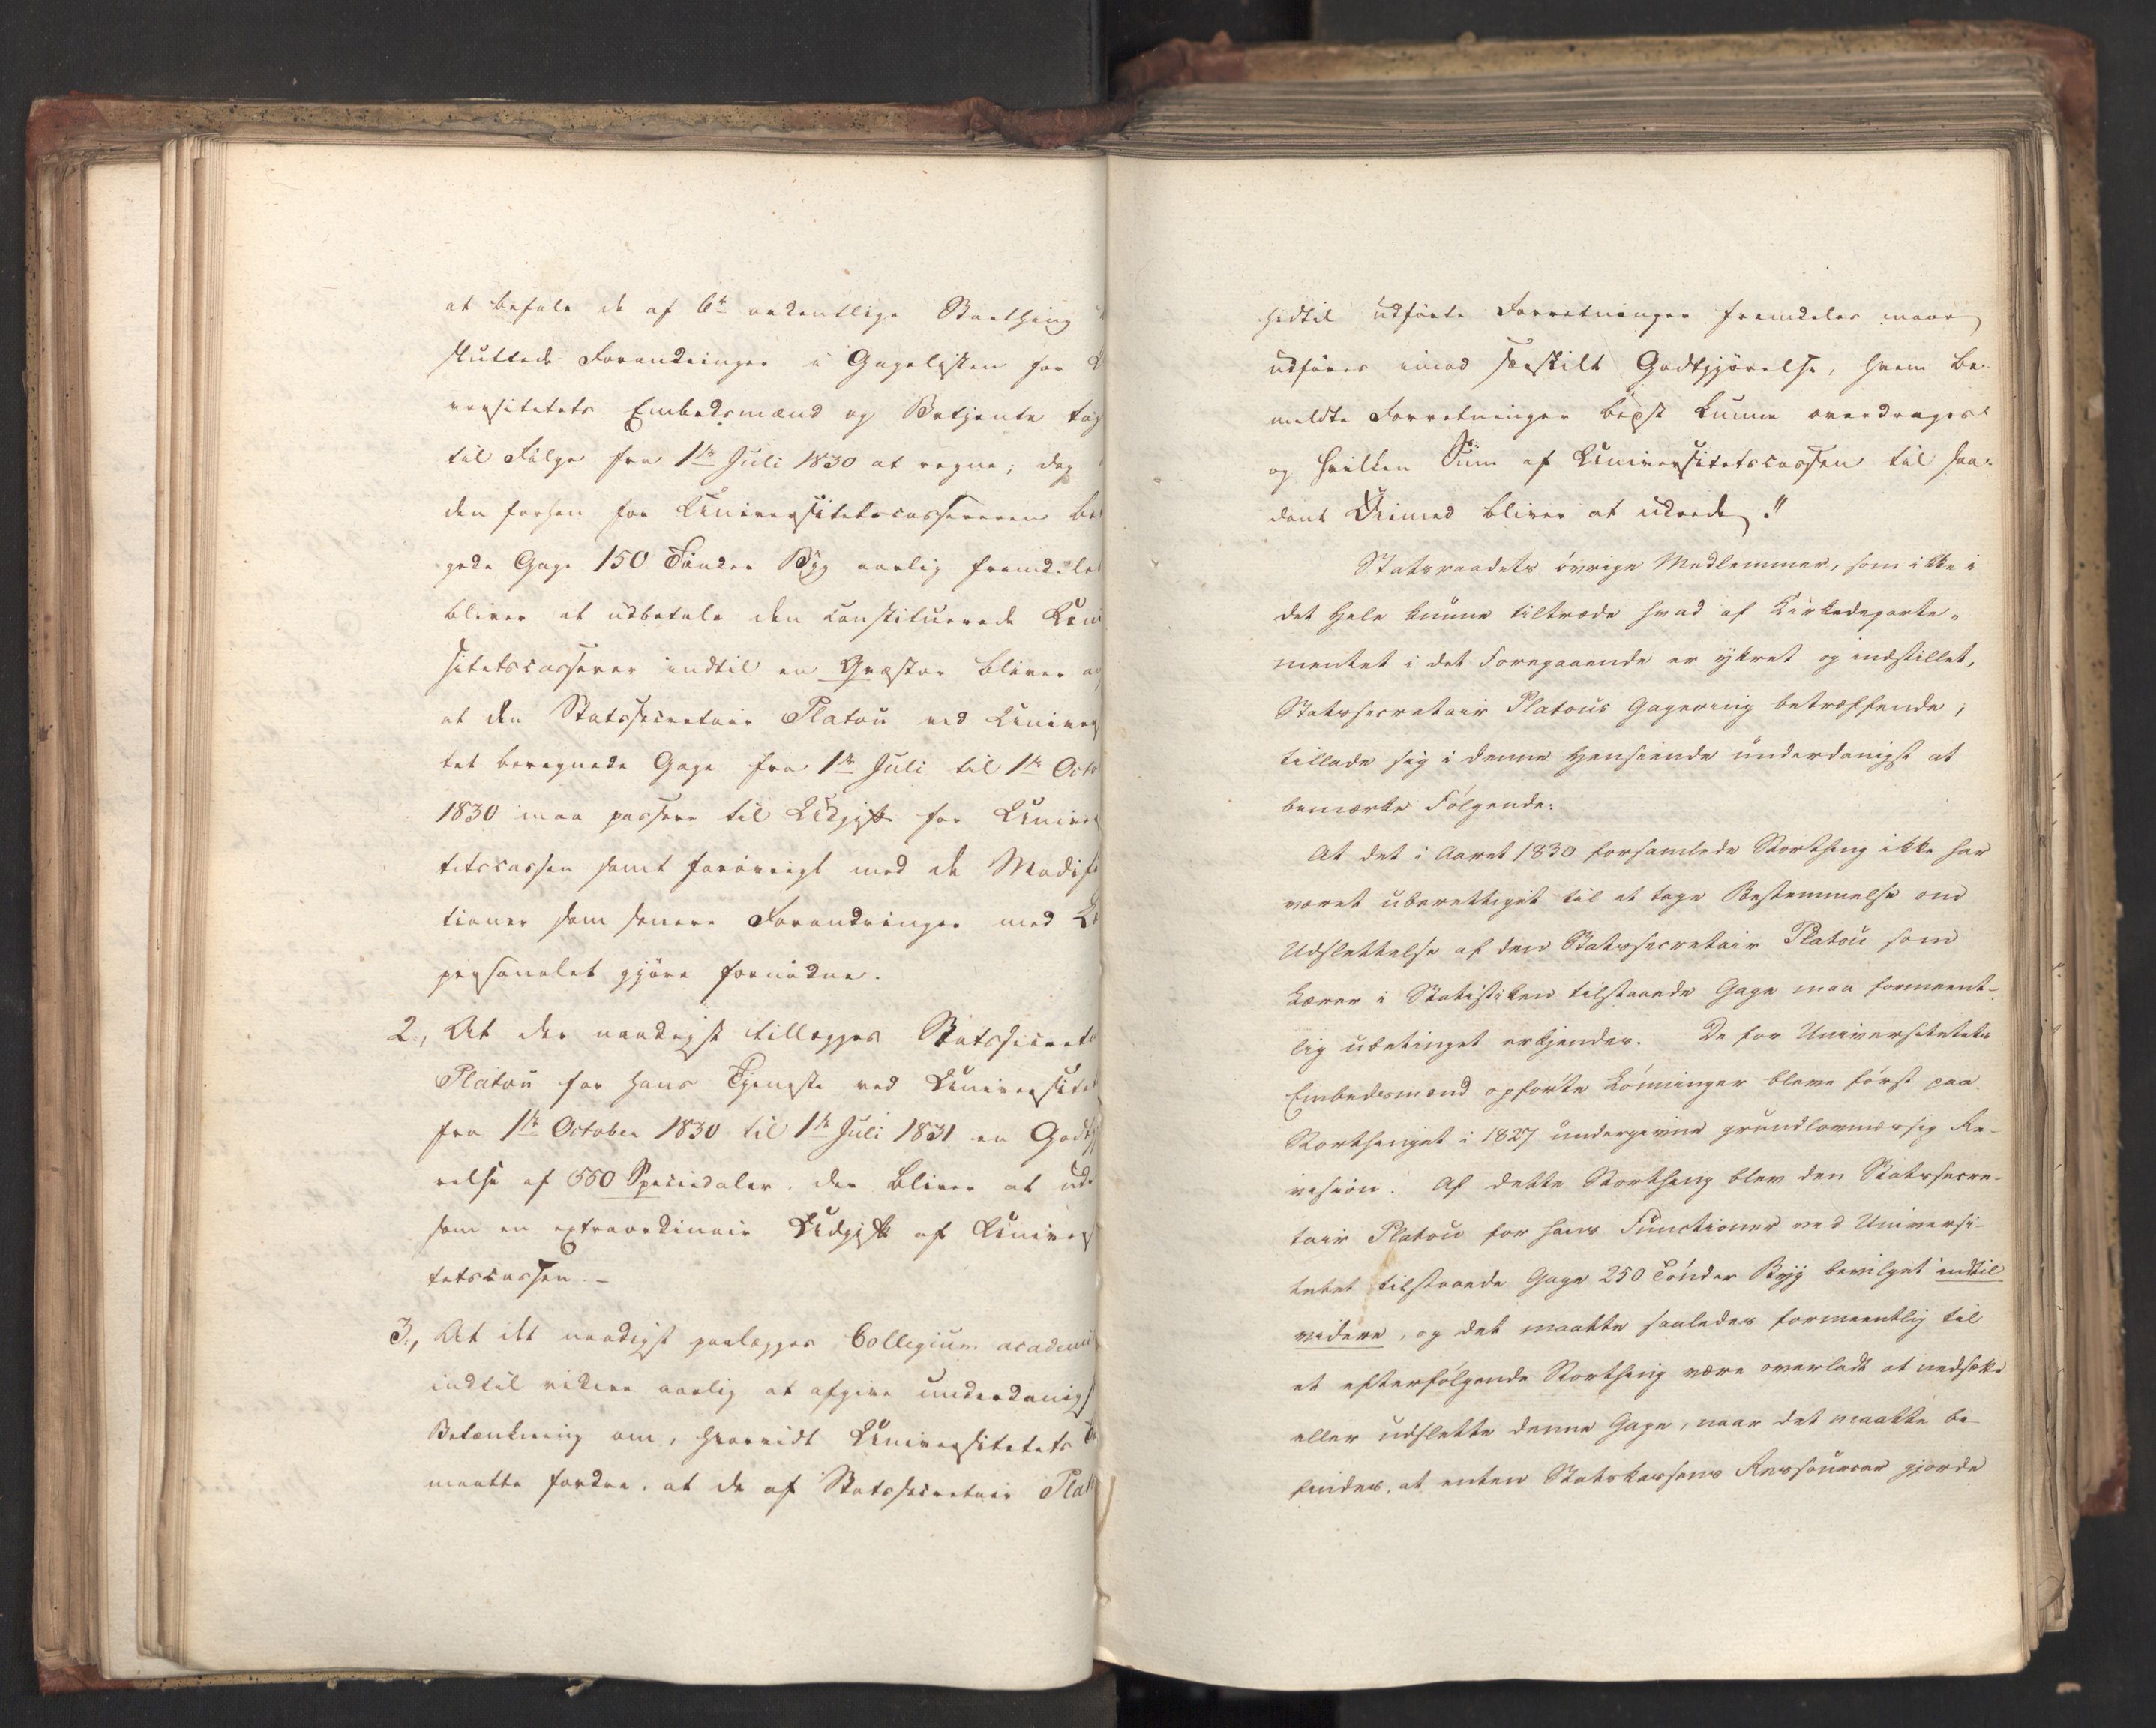 at befale de af 6te ordentlige Storthing
sluttede Forandringer i Gagelisten for U
versitetets Embedsmænd og Betjente tag
til Følge fra 1ste Juli 1830 at regne; dog
den forhen for Universitetscassereren be
gede Gage 150 Tønder Byg aarlig fremdeles
bliver at udbetale den constituerede Univ
sitetscasserer indtil en Qvæstor bliver a
at den Statssecretair Platou ved Univers
tet beregnede Gage fra 1ste Juli til 1ste Octo
1830 maa passere til Udgift for Univer
tetscassen samt forøvrigt med de Modifi
tioner som senere Forandringer med Læ
personalet gjøre fornødne.
2., At der naadigst tillægges Statssecreta
Platou for hans Tjeneste ved Universitet
fra 1ste October 1830 til 1ste Juli 1831 en Godtgj
relse af 550 Speciedaler, der bliver at ude
som en extraordinair Udgift af Univers
tetscassen. –
3., At det naadigst paalægges Collegium academi
indtil videre aarlig at afgive underdanigst
Betænkning om, hvorvidt Universitetets
maatte fordre, at de af Statssecretair Plat
hidtil udførte Forretninger fremdeles maae
udføres imod særskilt Godtgjørelse, hvem be-
meldte Forretninger bedst kunne overdrages
og hvilken Sum af Universitetscassen til saa-
dant Øiemed bliver at udrede."
Statsraadets øvrige Medlemmer, som ikke i
det Hele kunne tiltræde hvad af Kirkedeparte-
mentet i det Foregaaende er yttret og indstillet,
Statssecretair Platous Gagering betræffende,
tillade sig i denne Henseende underdanigst at
bemærke Følgende:
At det i Aaret 1830 forsamlede Storthing ikke har
været uberettiget til at tage Bestemmelse om
Udslettelse af den Statssecretair Platou som
Lærer i Statistiken tilstaaede Gage maa formeent-
lig ubetinget erkjendes. De for Universitetets
Embedsmænd opførte Lønninger bleve først paa
Storthinget i 1827 undergivne grundlovmæssig Re-
vision. Af dette Storthing blev den Statssecre-
tair Platou for hans Functioner ved Universi-
tetet tilstaaede Gage 250 Tønder Byg bevilget indtil
videre, og det maatte saaledes formeentlig til
et efterfølgende Storthing være overladt at nedsætte
eller udslette denne Gage, naar det maatte be-
findes, at enten Statskassens Ressourcer gjorde